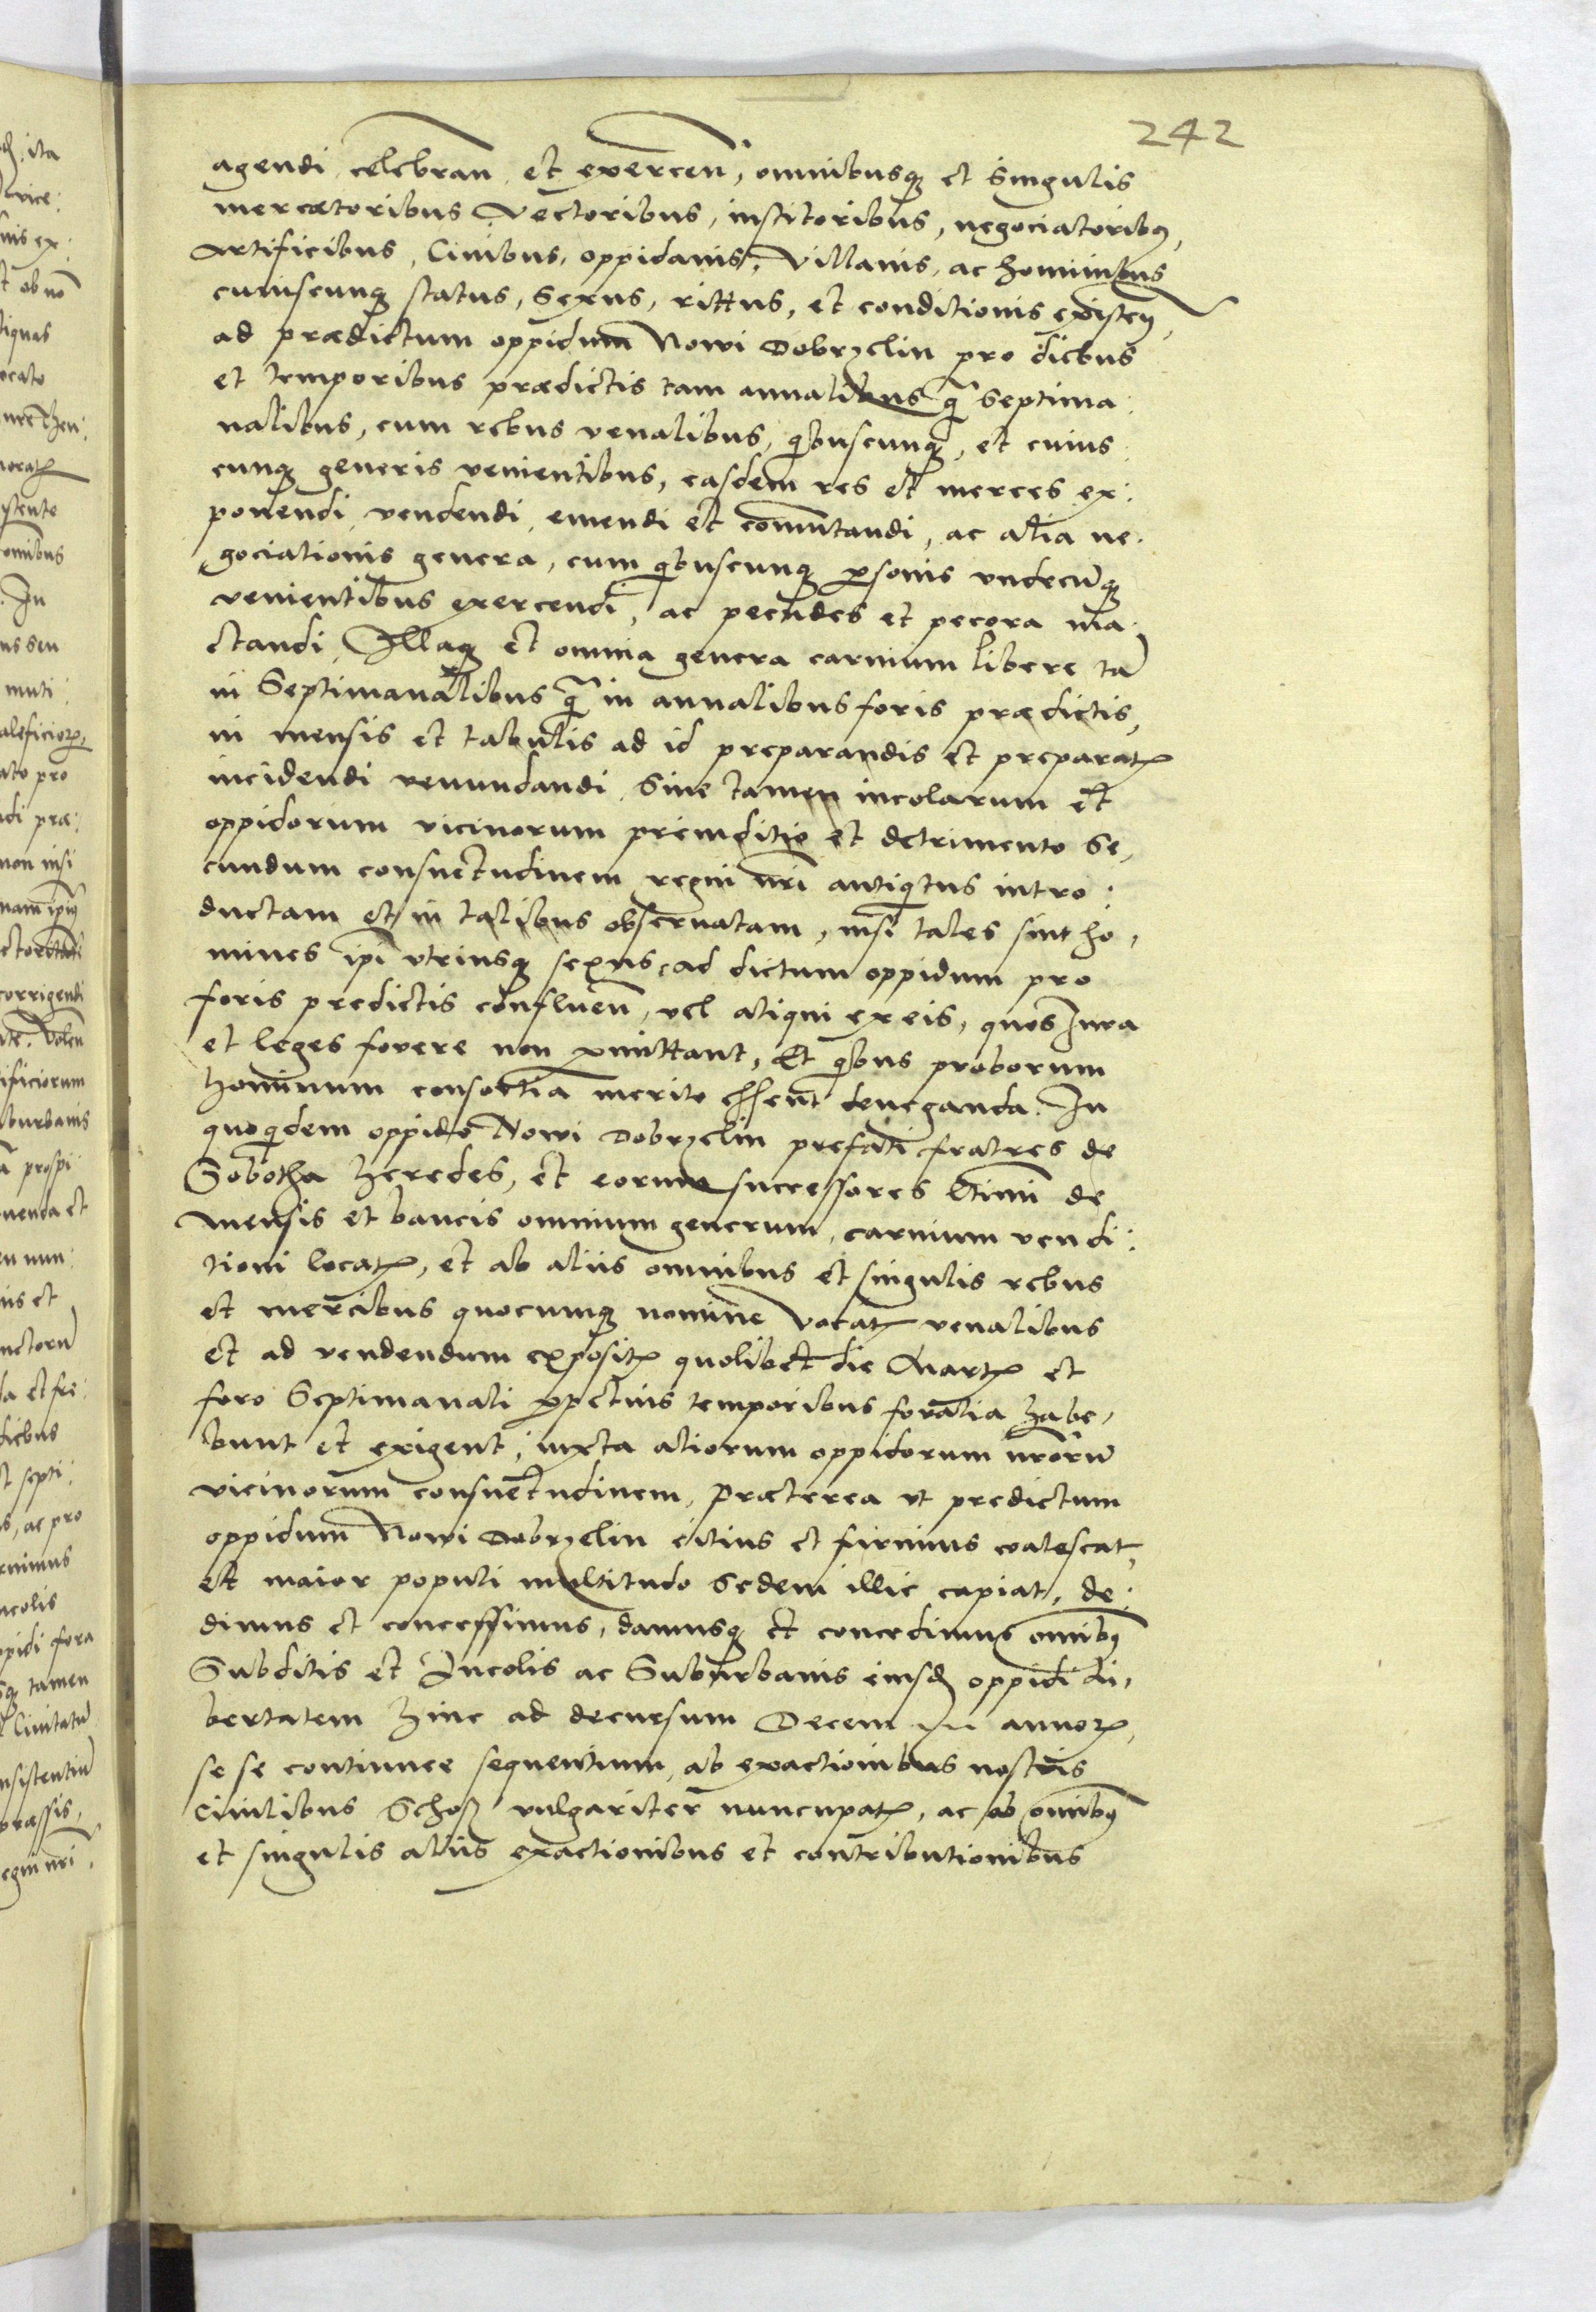 242
agendi, celebran̄ et exercen̄, omnibusqꝫ et singulis
mercatoribus Vectoribus, institoribus, negociatoribꝰ,
Artificibus, Ciuibus, oppidanis, Villanis, ac hominibus
cuiuscunqꝫ status, sexus, rittus, et conditionis existen̄,
ad prædictum oppidum Nowi Dobrzelin pro diebus
et temporibus prædictis tam annalibus q̄ septima:
nalibus, cum rebus venalibus, qibuscunqꝫ, et cuius
cunqꝫ generis venientibus, easdem res et merces ex:
ponendi, vendendi, emendi et com̄utandi, ac alia ne:
gociationis genera, cum qibuscunqꝫ ꝑsonis vndecūqꝫ
venientibus exercendi, ac pecudes et pecora ma:
ctandi, Illaqꝫ et omnia genera carnium libere tā
in Septimanalibus q̄ in annalibus foris prædictis,
in mensis et tabulis ad id preparandis et preparatꝭ
incidendi venundandi, Sine tamen incolarum et
oppidorum vicinorum preiuditio et detrimento se,
cundum consuetudinem regni nr̄i antiqitus intro:
ductam et in talibus obseruatam, nisi tales sint ho,
mines ip̄i vtriusqꝫ sexus, ad dictum oppidum pro
foris predictis confluen̄, vel aliqui ex eis, quos Iura
et leges fovere non ꝑmittant, Et qibus proborum
hominum consortia merito essent deneganda. In
quoqidem oppido Nowi Dobrzelin prefati fratres de
Sobotha heredes, et eorum successores l̄timi de
mensis et bancis omnium generum, carnium vendi:
tioni locatꝭ, et ab aliis omnibus et singulis rebus
et mercibus quocumqꝫ nomine vocatꝭ venalibus
et ad vendendum expositꝭ quolibet die Martꝭ et
foro Septimanali ꝑpetuis temporibus foralia habe,
bunt et exigent, iuxta aliorum oppidorum nr̄orū
vicinorum consuetudinem, Præterea vt predictum
oppidum Nowi Dobrzelin citius et firmius coalescat,
et maior populi multitudo sedem illic capiat, de:
dimus et concessimus, damusqꝫ et concedimus om̄ibꝰ
Subditis et Incolis ac Suburbanis eiusd̄ oppidi li,
bertatem hinc ad decursum Decem annorꝭ,
se se continuee sequentium, ab exactionibus nostris
Ciuilibus Schoß vulgariter nuncupatꝭ, ac ab om̄ibꝰ
et singulis aliis exactionibus et contributionibus